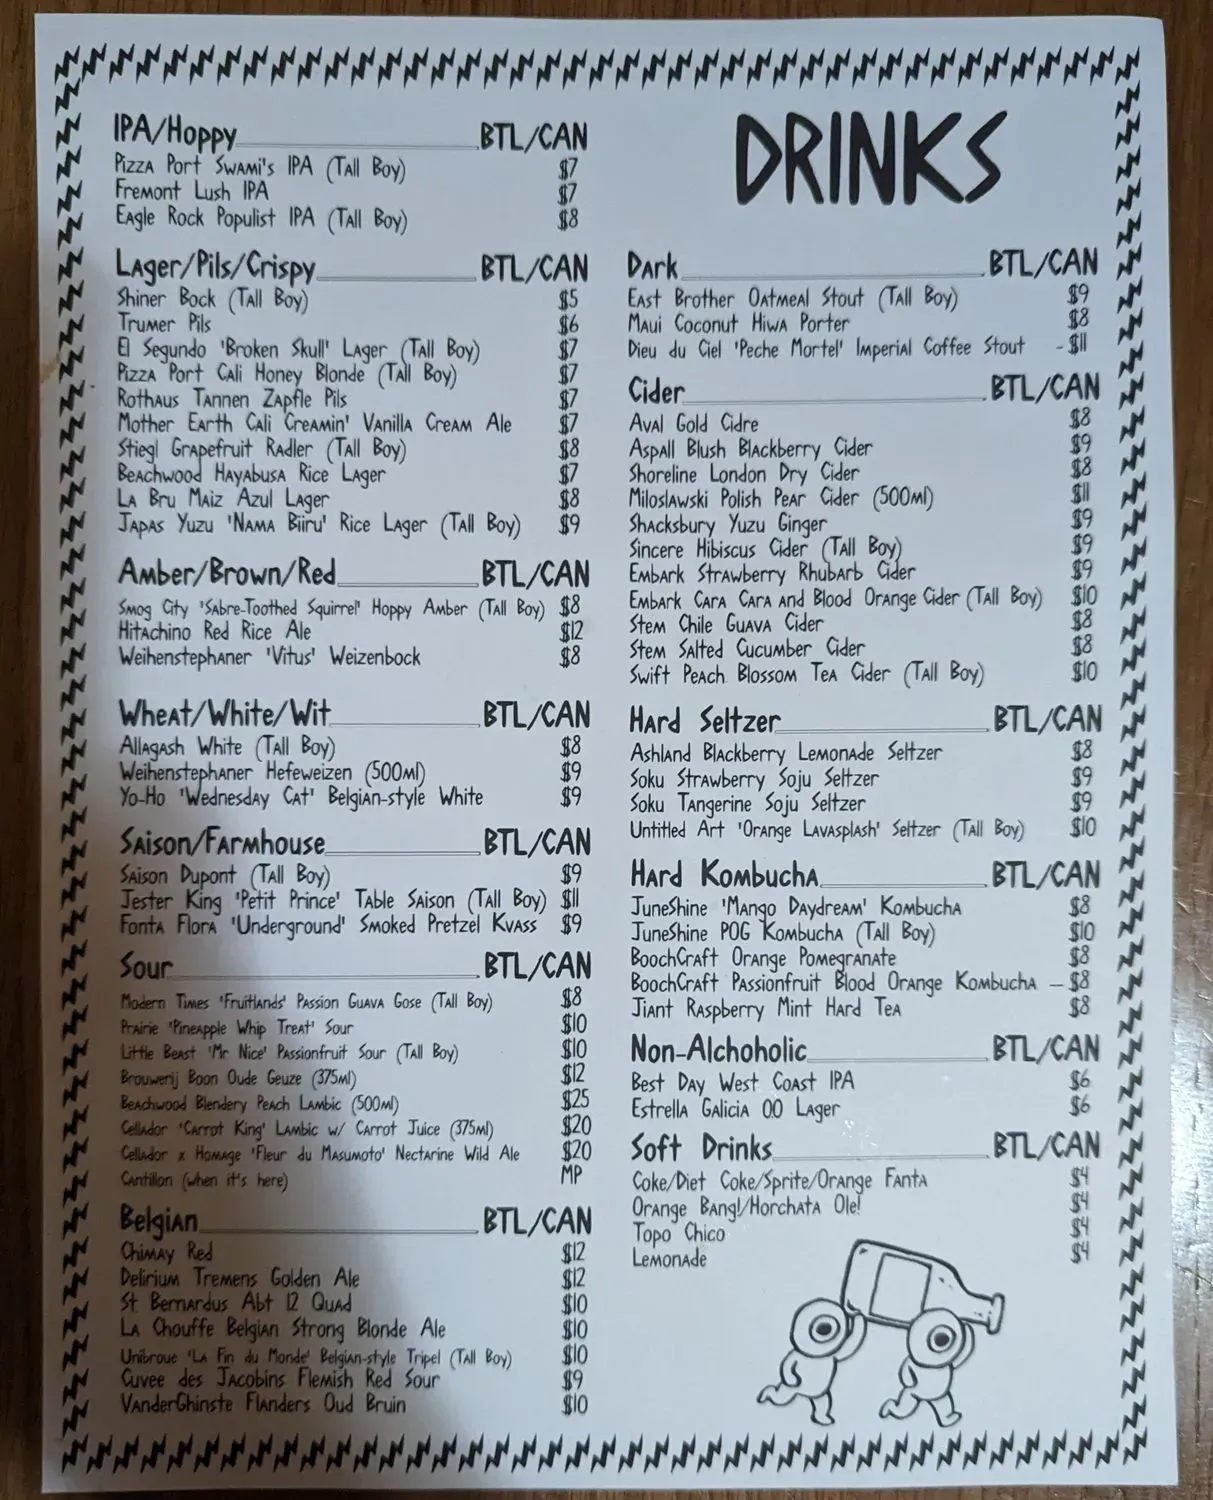 DRINKS
IPA/Hoppy BTL/CAN
Pizza Port Swami's IPA (Tall Boy) $7
Fremont Lush IPA $7
Eagle Rock Populist IPA (Tall Boy) $8
Lager/Pils/Crispy BTL/CAN
Shiner Bock (Tall Boy) $5
Trumer Pils $6
El Segundo 'Broken Skull' Lager (Tall Boy) $7
Pizza Port Cali Honey Blonde (Tall Boy) $7
Rothaus Tannen Zapfle Pils $7
Mother Earth Cali Creamin' Vanilla Cream Ale $7
Stiegl Grapefruit Radler (Tall Boy) $8
Beachwood Hayabusa Rice Lager $7
La Bru Maiz Azul Lager $8
Japas Yuzu 'Nama Biiru' Rice Lager (Tall Boy) $9
Amber/Brown/Red BTL/CAN
Smog City 'Sabre-Toothed Squirrel' Hoppy Amber (Tall Boy) $8
Hitachino Red Rice Ale $12
Weihenstephaner 'Vitus' Weizenbock $8
Wheat/White/Wit BTL/CAN
Allagash White (Tall Boy) $8
Weihenstephaner Hefeweizen (500ml) $9
Yo-Ho 'Wednesday Cat' Belgian-style White $9
Saison/Farmhouse BTL/CAN
Saison Dupont (Tall Boy) $9
Jester King 'Petit Prince' Table Saison (Tall Boy) $11
Fonta Flora 'Underground' Smoked Pretzel Kvass $9
Sour BTL/CAN
Modern Times 'Fruitlands' Passion Guava Gose (Tall Boy) $8
Prairie 'Pineapple Whip Treat' Sour $10
Little Beast 'Mr Nice' Passionfruit Sour (Tall Boy) $10
Brouwerij Boon Oude Geuze (375ml) $12
Beachwood Blendery Peach Lambic (500ml) $25
Cellador 'Carrot King' Lambic w/ Carrot Juice (375ml) $20
Cellador x Homage 'Fleur du Masumoto' Nectarine Wild Ale $20
Cantillon (when it's here) MP
Belgian BTL/CAN
Chimay Red $12
Delirium Tremens Golden Ale $12
St. Bernardus Abt 12 Quad $10
La Chouffe Belgian Strong Blonde Ale $10
Unibroue 'La Fin du Monde' Belgian-style Tripel (Tall Boy) $10
Cuvee des Jacobins Flemish Red Sour $9
VanderGhinste Flanders Oud Bruin $10
Dark BTL/CAN
East Brother Oatmeal Stout (Tall Boy) $9
Maui Coconut Hiwa Porter $8
Dieu du Ciel 'Peche Mortel' Imperial Coffee Stout - $11
Cider BTL/CAN
Aval Gold Cidre $8
Aspall Blush Blackberry Cider $9
Shoreline London Dry Cider $8
Miloslawski Polish Pear Cider (500ml) $11
Shacksbury Yuzu Ginger $9
Sincere Hibiscus Cider (Tall Boy) $9
Embark Strawberry Rhubarb Cider $9
Embark Cara Cara and Blood Orange Cider (Tall Boy) $10
Stem Chile Guava Cider $8
Stem Salted Cucumber Cider $8
Swift Peach Blossom Tea Cider (Tall Boy) $10
Hard Seltzer BTL/CAN
Ashland Blackberry Lemonade Seltzer $8
Soku Strawberry Soju Seltzer $9
Soku Tangerine Soju Seltzer $9
Untitled Art 'Orange Lavasplash' Seltzer (Tall Boy) $10
Hard Kombucha BTL/CAN
JuneShine 'Mango Daydream' Kombucha $8
JuneShine POG Kombucha (Tall Boy) $10
BoochCraft Orange Pomegranate $8
BoochCraft Passionfruit Blood Orange Kombucha - $8
Jiant Raspberry Mint Hard Tea $8
Non-Alchoholic BTL/CAN
Best Day West Coast IPA $6
Estrella Galicia 00 Lager $6
Soft Drinks BTL/CAN
Coke/Diet Coke/Sprite/Orange Fanta $4
Orange Bang!/Horchata Ole! $4
Topo Chico $4
Lemonade $4